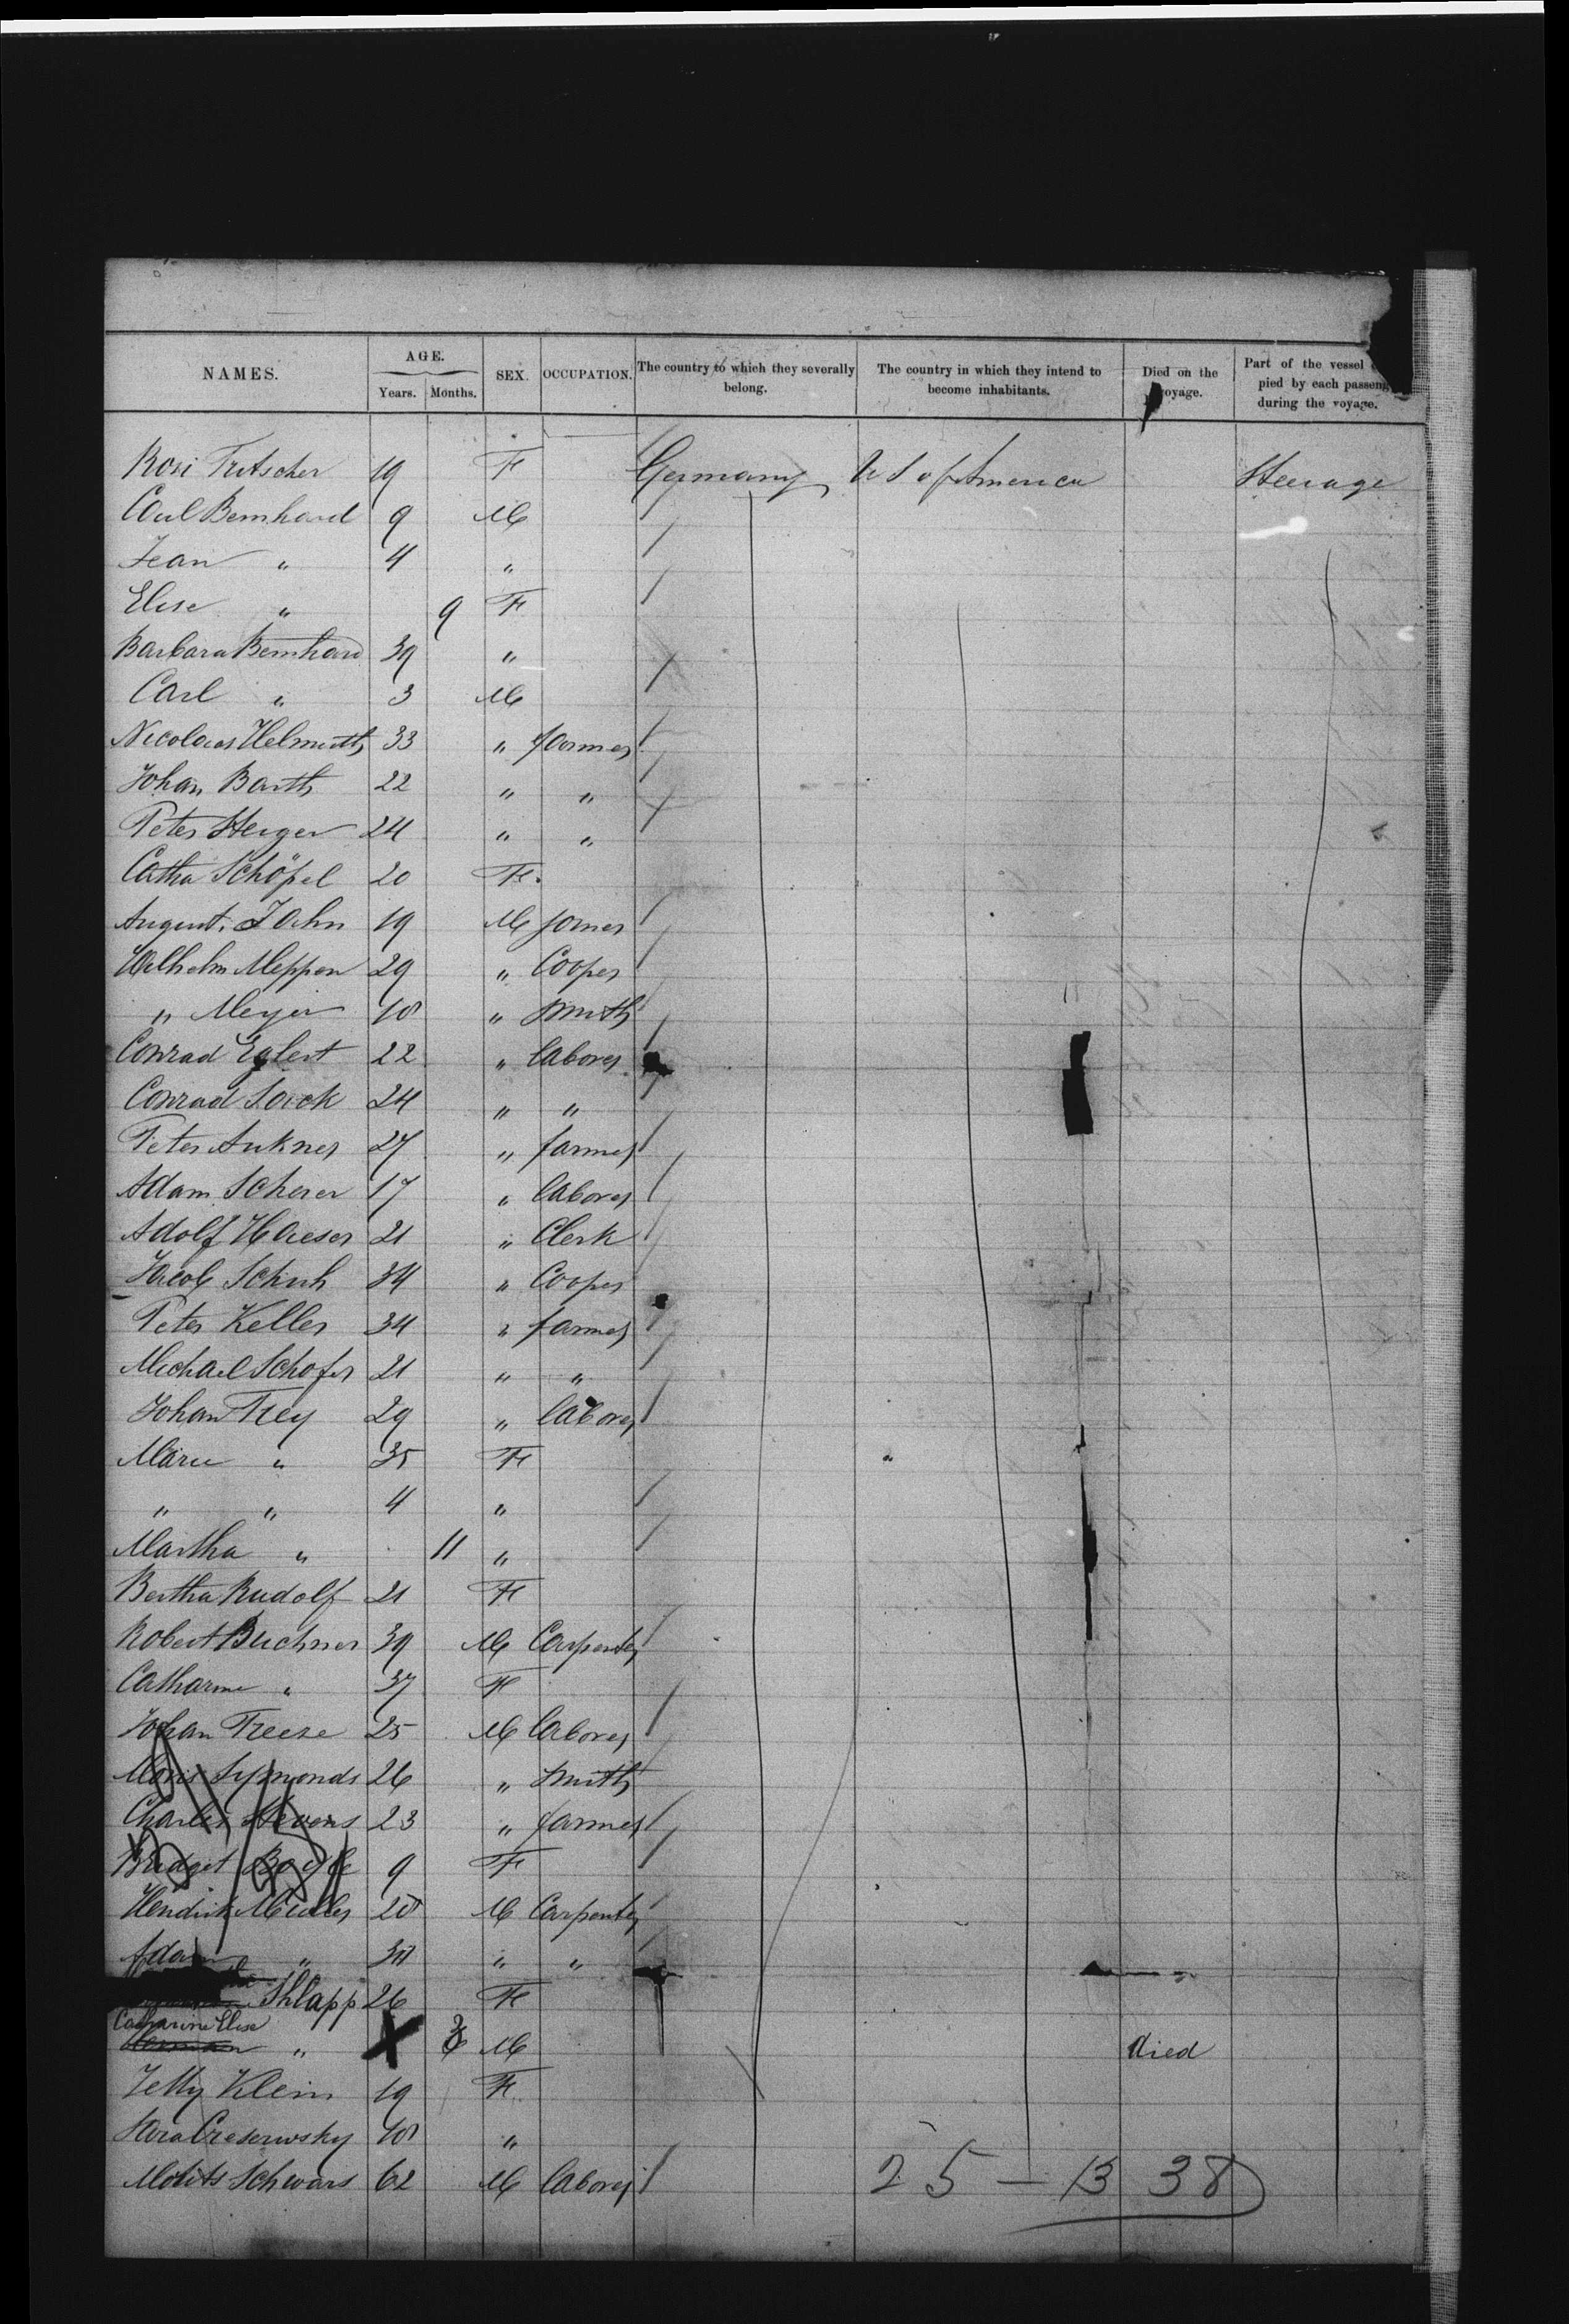 NAMES. AGE. Years. Months. SEX. OCCUPATION. The country to which they severally belong. The country in which they intend to become inhabitants. Died on the voyage. Part of the vessel pied by each passeng during the voyage.
Rosi Tritscher 19 F Germany U S of America Steerage
Carl Bernhard 9 M
Jean " 4 "
Elise " 9 F
Barbara Bernhard 39 "
Carl " 3 M
Nicolaas Helmuth 33 " farmer
Johan Barth 22 " "
Peter Steiger 24 " "
Catha Schöpel 20 F.
August. Jahn 19 M joiner
Wilhelm Meppen 29 " Cooper
" Meyer 18 " smith
Conrad Eglert 22 " laborer
Conrad Sack 24 " "
Peter Aukner 27 " farmer
Adam Scherer 17 " laborer
Adolf Haeser 21 " Clerk
Jacob Schuh 34 " Cooper
Peter Keller 34 " farmer
Michael Schofer 21 " "
Johan Frey 29 " laborer
Marie " 35 F
" " 4 "
Martha " 11 "
Bertha Rudolf 21 F
Robert Buchner 39 M Carpenter
Catharine " 37 F
Johan Freese 25 M laborer
Moris Symonds 26 " smith
Charles Stevens 23 " farmer
Bridget Boyle 9 F
Hendrik Muller 28 M Carpenter
Adam " "  "
Shlapp 26 F
Catharine Elise
Herman " M Died
Jetty Klein 19 F.
Sara 18 "
Morits Schwars 62 M laborer
25 - 13 38